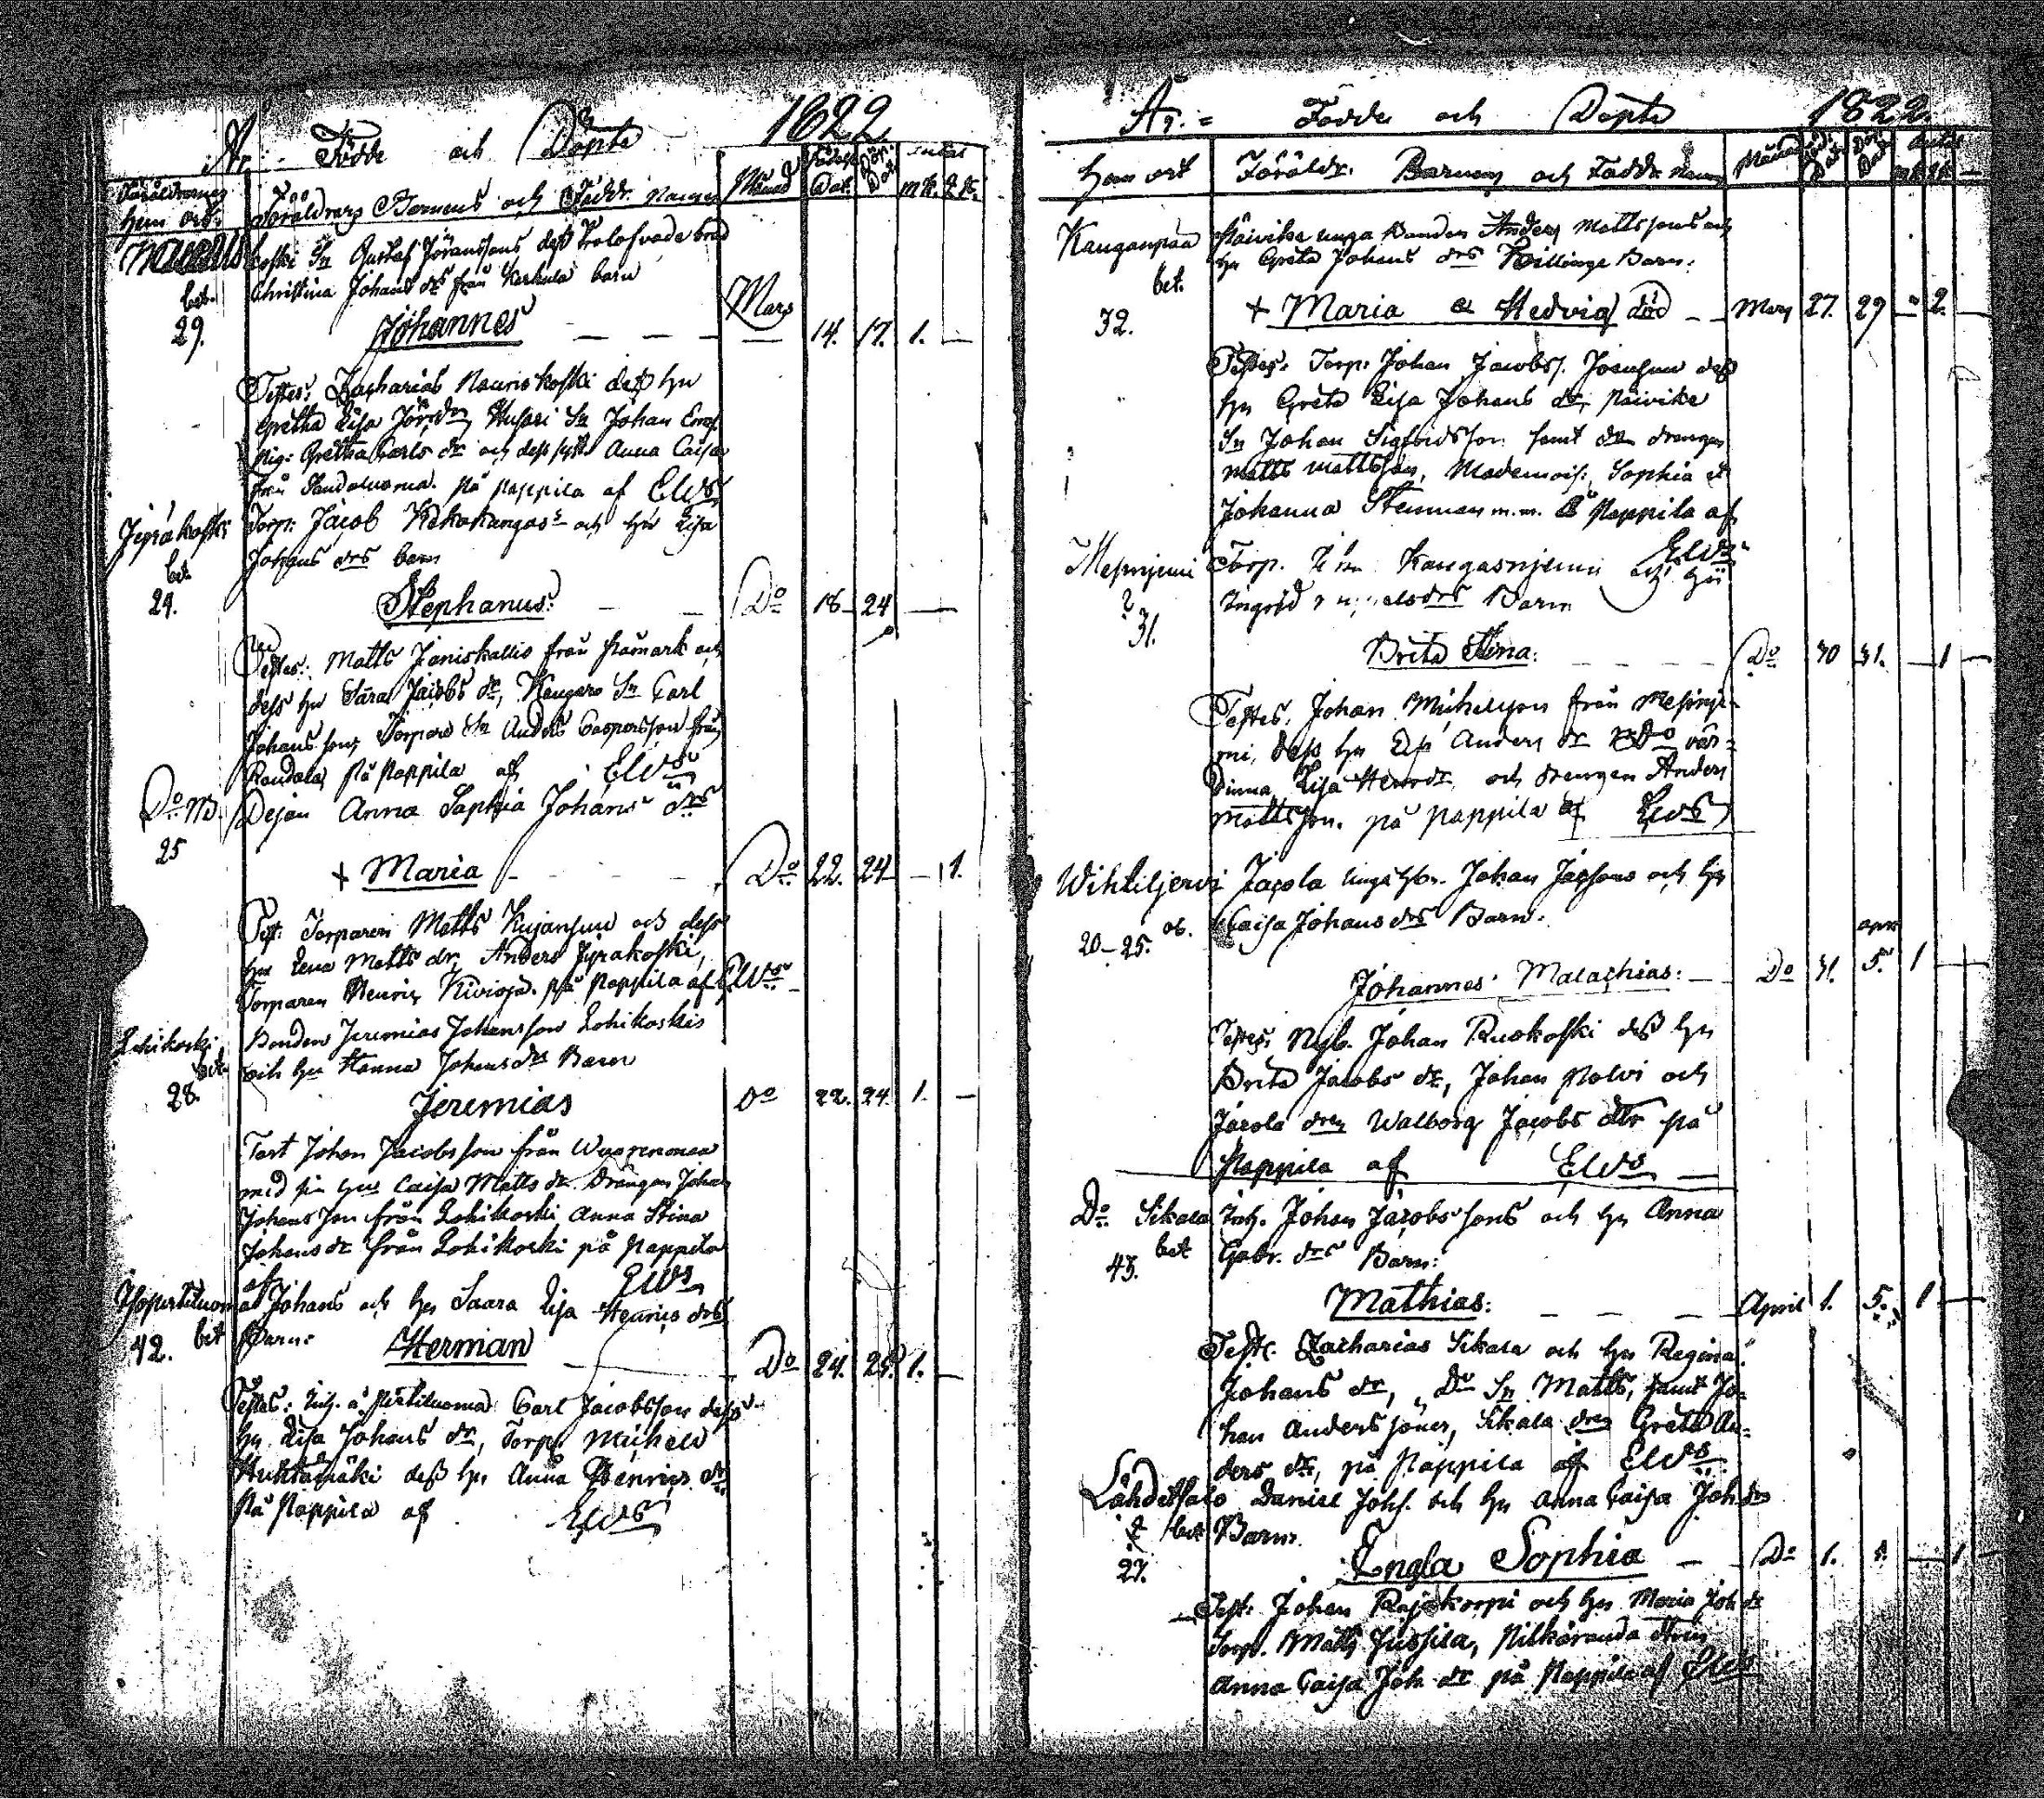 År. Födde och Döpte 1822
Föräldrarnes Hem ort. Föräldrars Barnens och Faddr. Namn Månad Födelse Dat. Döp. Dat. Antal mk. qk.
koski Sn Gustaf Jöranssons dess trolofvade
bet. Christina Johans dr från Karhula barn
29. Johannes — — — Mars 14. 17. 1. —
Testes: Zacharias Nauriskoski dess hu
Gretha Lisa Jörsdr, Sn Johan
Pig: Gretha Carls dr och dess syst. Anna Caisa
från på Pappila af Elvs
Jyräkoski Torp: Jacob Kekokangas och hu Lisa
bet. Johans drs barn
29. Stephanus: — — Do 18 24 —
Testes: Matts Janiskallio från Påmark och
dess hu Sara Jacobs dr, Kangars Sn Carl
Johansson, Torpare Sn Anders Casparsson från
på Pappila af Elvs
Do Dejan Anna Sophia Johans drs
25
+ Maria — — — Do 22. 24 — 1.
Test: Torparen Matts Kujansuu och dess
hu Lena Matts dr, Anders Jyräkoski,
Torparen Henric Kivioja. på Pappila af Elvs
Lohikoski Bonden Jeremias Johansson Lohikoskis
bet. och hu Hanna Johans drs Barn
28. Jeremias Do 22. 24. 1. —
Test Johan Jacobsson från
med sin hu Caisa Matts dr. Drängen Johan
Johansson från Lohikoski Anna Stina
Johans dr från Lohikoski på Pappila
af Elvs
Johans och hu Saara Lisa Henrics drs
42. bet Barn: Herman Do 24. 25. 1. —
Testes: Inh. å Pertiluoma Carl Jacobsson dess
hu Lisa Johans dr, Torp. Michels
Huhtamäki dess hu Anna Henrics dr
På Pappila af Elvs
År. Födde och Döpte 1822.
Hem ort Föräldr. Barnens och Faddr. Namn Månad Föd. Dat. Döp. Dat. Antal mk. qk.
Kanganpää Päivike unga Bonden Anders Mattssons och
bet. hu Greta Johans drs Tvillinge Barn:
32. + Maria & Hedvig död — Mars 27. 29 — 2. —
Testes: Torp: Johan Jacobs. Josusuu dess
hu Greta Lisa Johans dr, Päivike
Sn Johan Sigfridsson samt drengen
Matts Mattsson, Mademois: Sophia et
Johanna Stenman m.m. å Pappila af
Elvs
Torp. Kangasnjemi och hu
Ingrid drs Barn
31.
Brita Stina: — — — Do 30 31. — 1 —
Testes: Johan Michelsson från
mi, dess hu Anders dr Do vär-
dinna Lisa Henr dr och Drengen Anders
Mattsson. på Pappila af Elvs
Wihteljervi Jacola unga Johan Jacsons och hu
20–25. Caisa Johans drs Barn.
Johannes Malachias: — Do 31. apr 5. 1 —
Testes: Nyb. Johan Ruokoski dess hu
Brita Jacobs dr, Johan Polvi och
Walborg Jacobs dtr på
Pappila af Elvs
Do Sikala Inh. Johan Jacobssons och hu Anna
bet Gabr. drs Barn:
43.
Mathias: — — — April 1. 5. 1 —
Testes: Zacharias Sikala och hu Regina
Johans dr, Do Sn Matts, samt Jo-
han Anderssoner, Sikala drn Greta An-
ders dr, på Pappila af Elvs
Lähdetsalo Daniel Johs. och hu Anna Caisa Joh drs
bet Barn
27. Engla Sophia — Do 1. — 1 —
Test: Johan Rajakorpi och hu Maria Joh dr
Torp. Matts Jussila,
Anna Caisa Joh dr på Pappila af Elvs